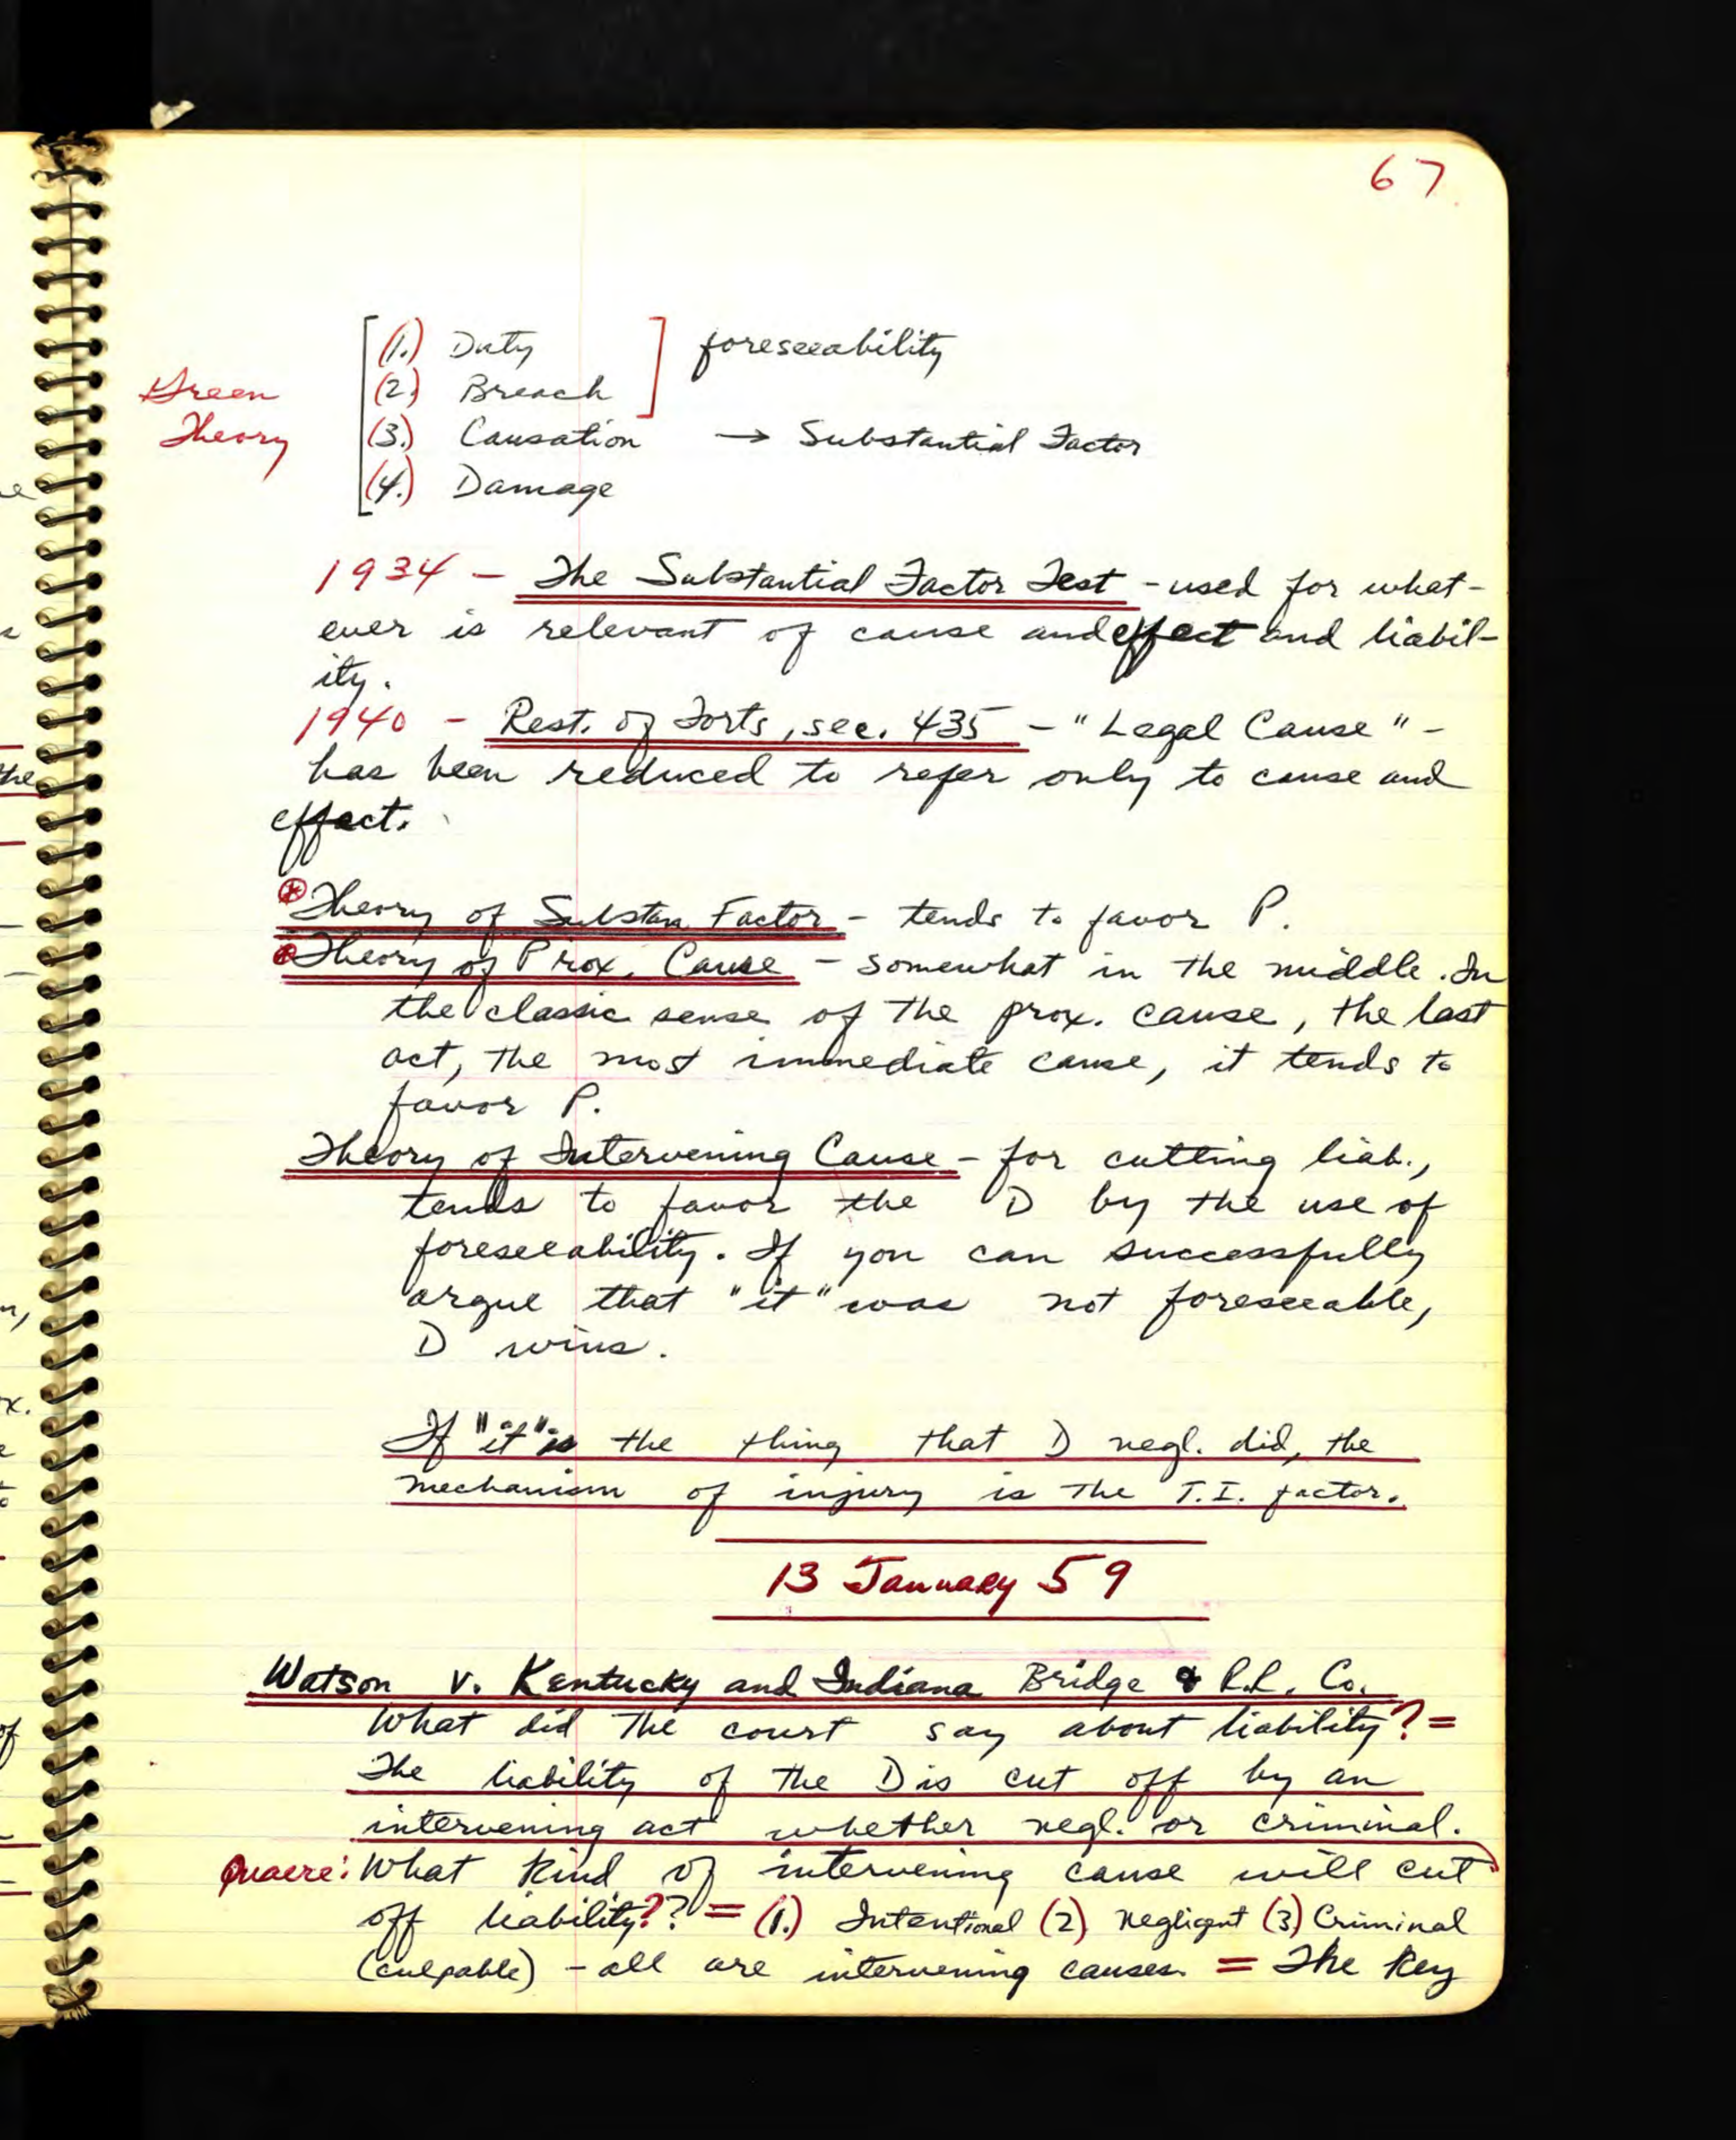 67
(1.) Duty ] foreseeability
Green (2.) Breach
Theory (3.) Causation → Substantial Factor
(4.) Damage
1934 - The Substantial Factor Test - used for what-
ever is relevant of cause and effect and liabil-
ity.
1940 - Rest. of Torts, sec. 435 - "Legal Cause" -
has been reduced to refer only to cause and
effect.
Theory of Substan Factor - tends to favor P.
Theory of Prox. Cause - somewhat in the middle. In
the classic sense of the prox. cause, the last
act, the most immediate cause, it tends to
favor P.
Theory of Intervening Cause - for cutting liab.,
tends to favor the D by the use of
foreseeability. If you can successfully
argue that "it" was not foreseeable,
D wins.
If "it" is the thing that D negl. did, the
mechanism of injury is the T.I. factor.
13 January 59
Watson v. Kentucky and Indiana Bridge & R.R. Co.
What did the court say about liability? =
The liability of the D is cut off by an
intervening act whether negl. or criminal.
Quaere: What kind of intervening cause will cut
off liability?? = (1.) Intentional (2) Negligent (3) Criminal
(culpable) - all are intervening causes. = The key